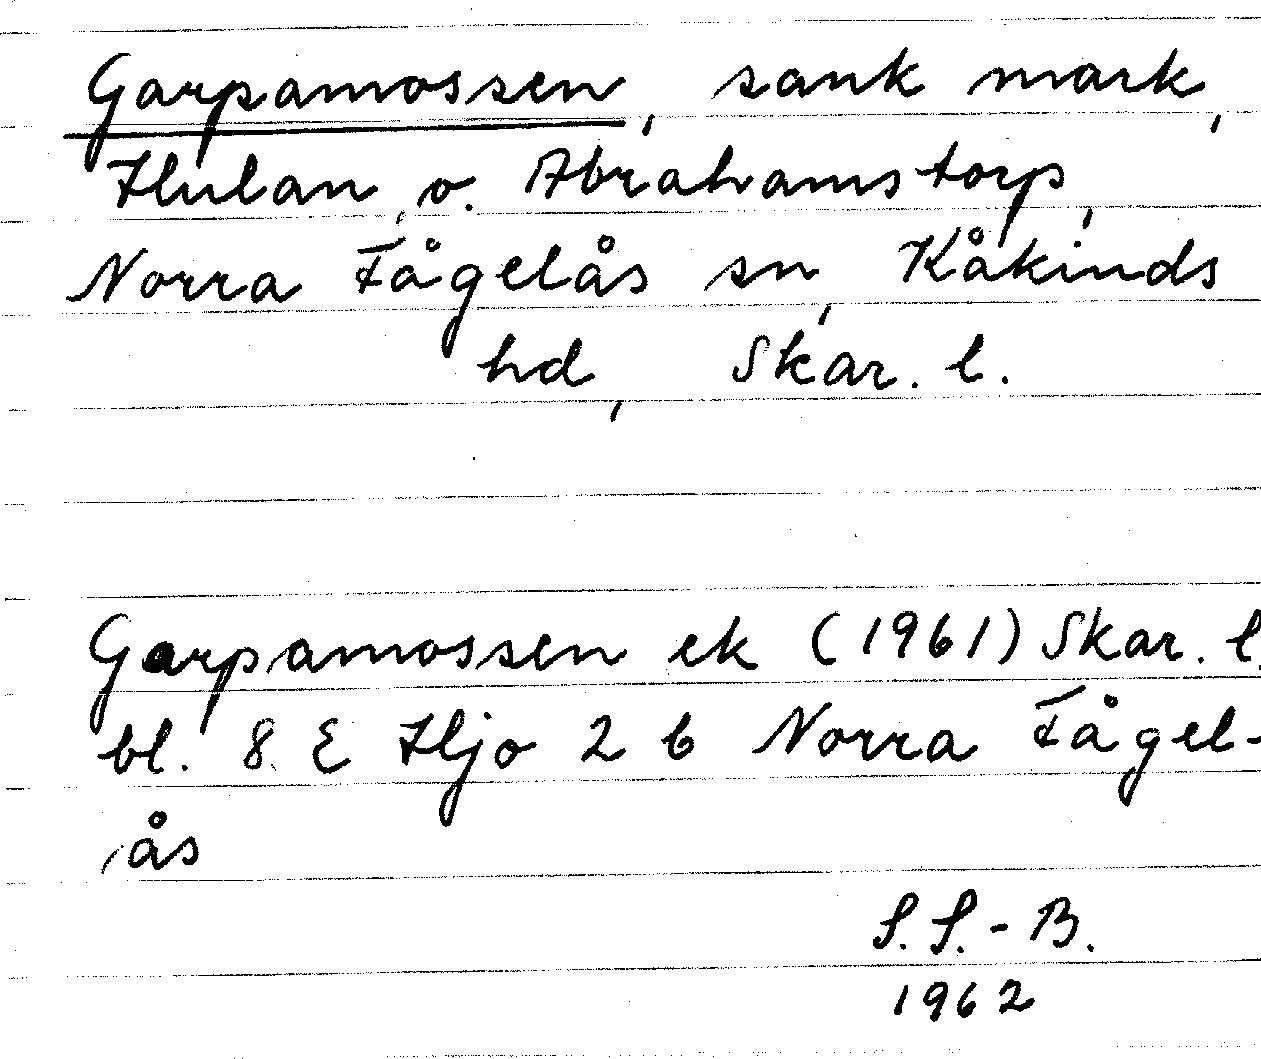 Garpamossen, sank mark,
Hulan, o. Abrahamstorp,
Norra Fågelås sn, Kåkinds
hd, Skar. l.
Garpamossen ek (1961) Skar. l.
bl. 8 E Hjo 2 b Norra Fågel-
ås
S. S.-B.
1962